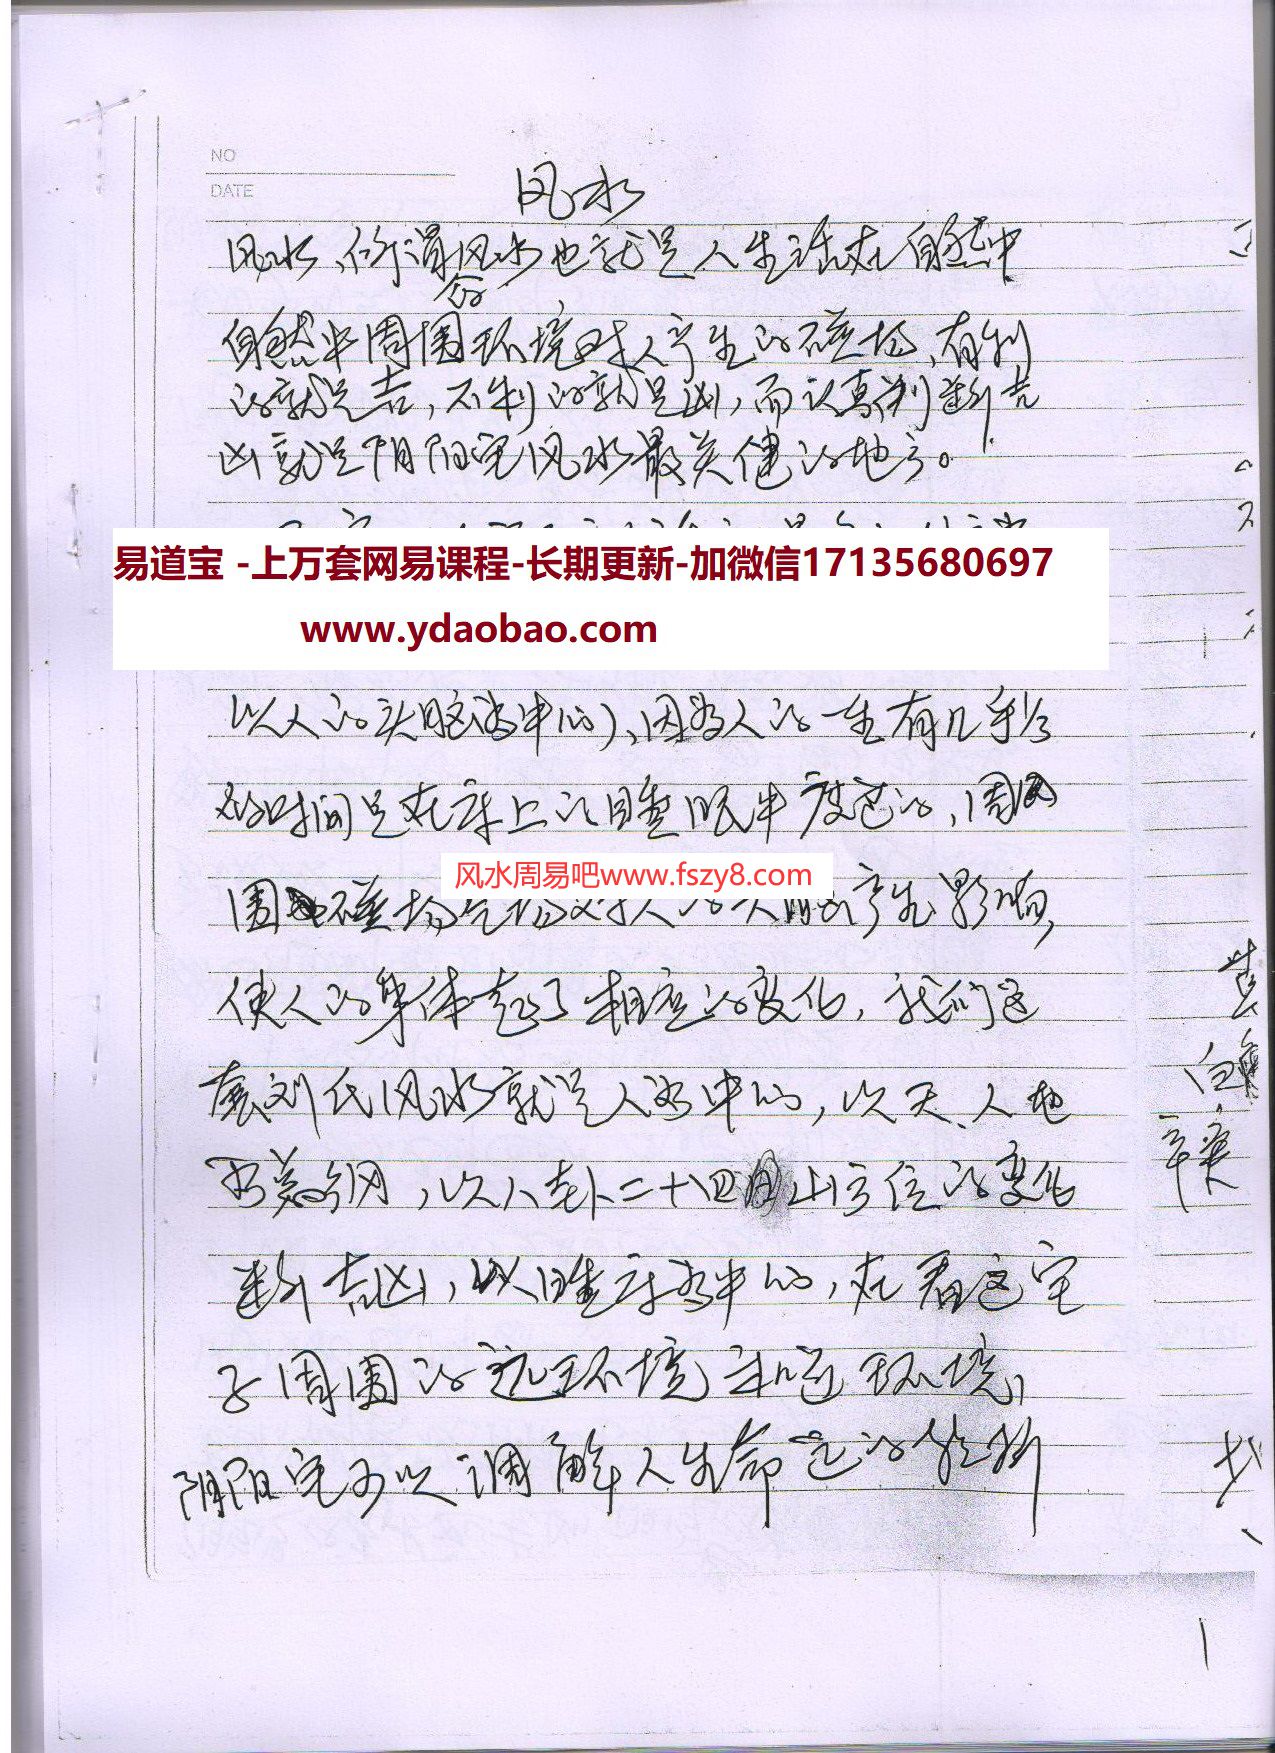 NO
DATE
风水
风水、所谓风水也就是人生活在自然中
自然中周围环境对人产生的磁场、有利
的就是吉，不利的就是凶，而认真判断吉
凶就是阴阳宅风水最关健的地方。
易道宝 -上万套网易课程-长期更新-加微信17135680697
www.ydaobao.com
以人的头脑为中心)、因为人的一生有几乎
的时间是在床上的睡眠中度过的，周
风水周易吧www.fszy8.com
围磁场气场对人的头脑产生影响，
使人的身体起了相应的变化，我们这
套刘氏风水就是人为中心，以天、人地
为总纲，以八卦二十四山方位的变化
断吉凶，以睡床为中心，在看这宅
子周围的远环境和近环境，
阴阳宅可以调解人生命运的
1